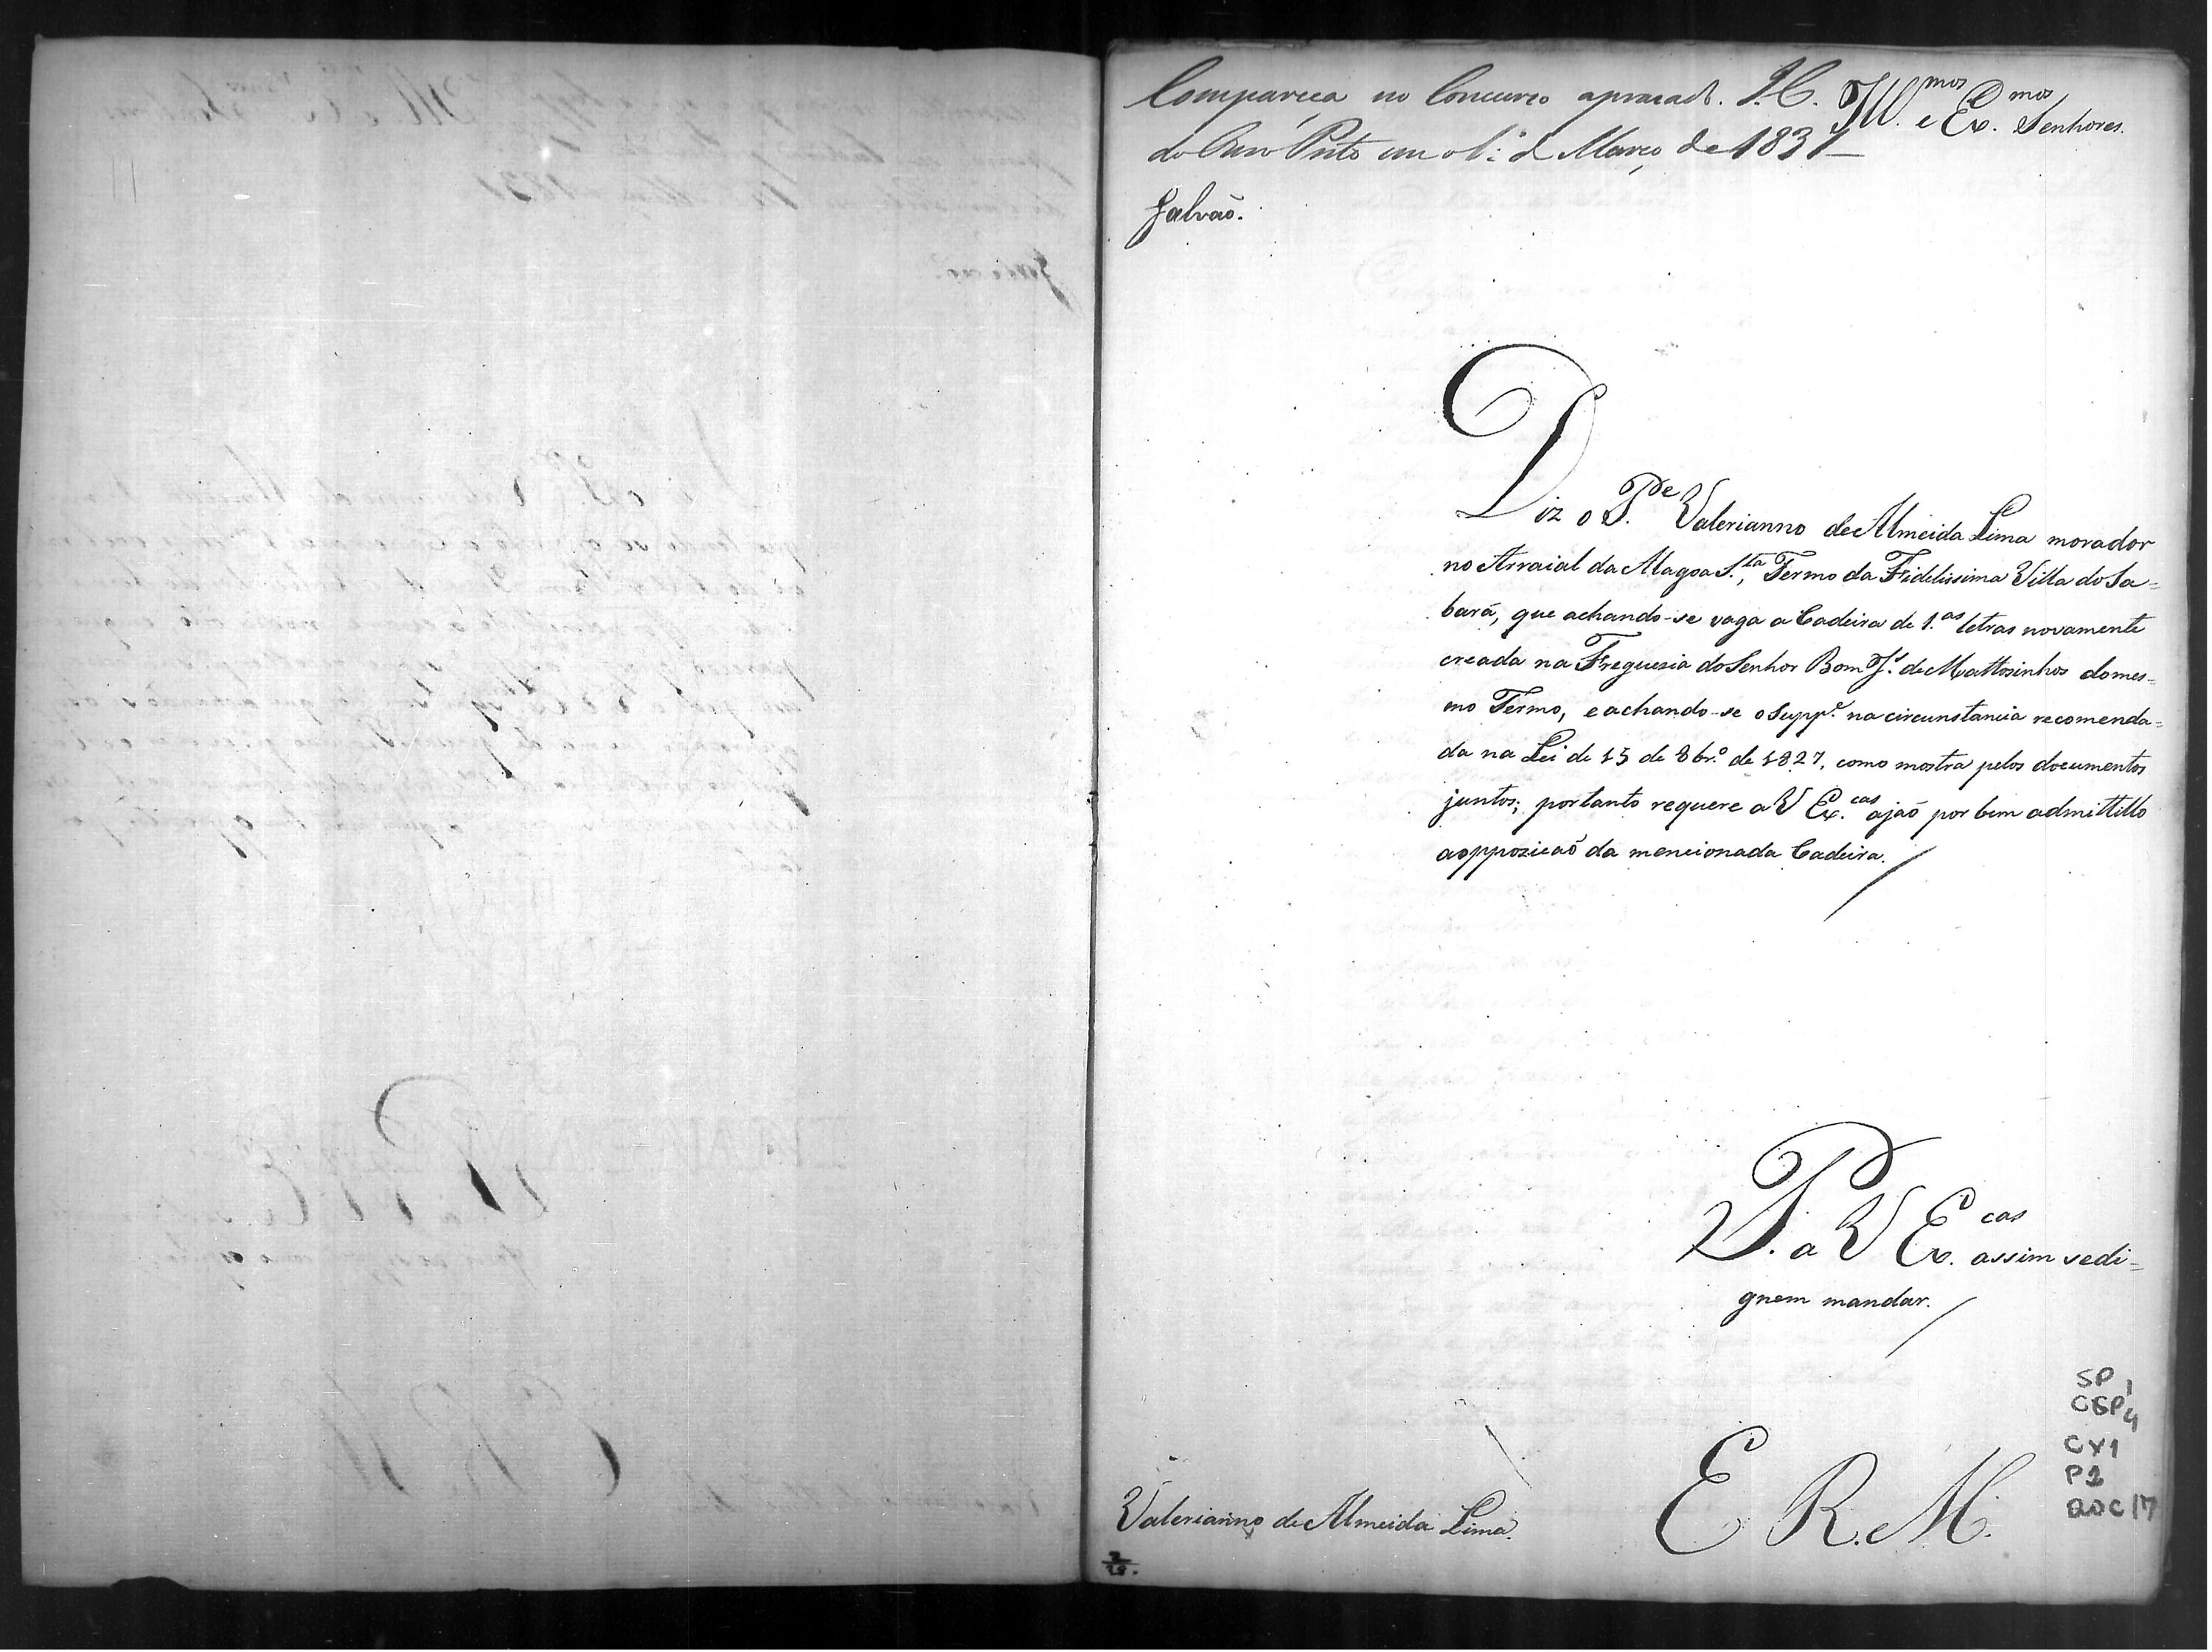 Compareça no Concurso aprazado. I. C.
do Ouro Preto em o 1.º de Março de 1831
Galvão.
Ill.mos e Ex.mos Senhores.
Diz o P.e Valerianno de Almeida Lima morador
no Arraial da Alagoa S.ta, Termo da Fidelissima Villa do Sa=
bará, que achando-se vaga a Cadeira de 1.as letras novamente
creada na Freguesia do Senhor Bom J.s de Mattosinhos do mes=
mo Termo, e achando-se o Supp.e na circunstancia recomenda=
da na Lei de 15 de 8br.º de 1827, como mostra pelos documentos
juntos; portanto requere a V Ex.cas ajaõ por bem admittillo
a opposicaõ da mencionada Cadeira.
P. a V Ex.cas assim se di=
gnem mandar.
E. R. M.
Valerianno de Almeida Lima.
SP 1
CX1
P1
DOC 17